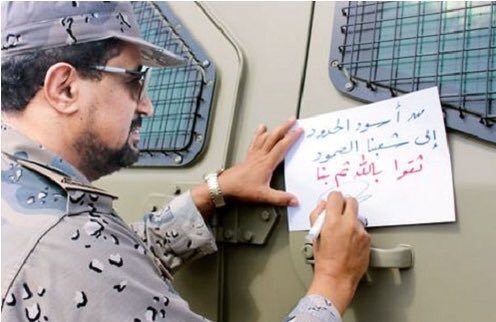 من أسود الحدود
إلى شعبنا الصمود
ثقوا بالله ثم بنا